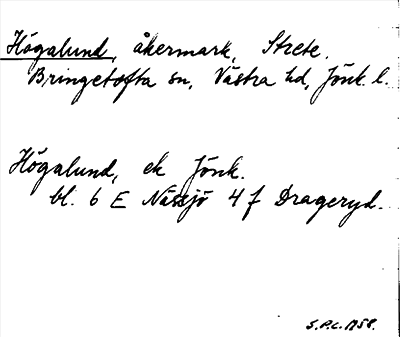 Högalund, åkermark, Strete.
Bringetofta sn, Västra hd, Jönk. l.
Högalund, ek Jönk.
bl. 6 E Nässjö 4 f Drageryd.
S.P.L. 1958.